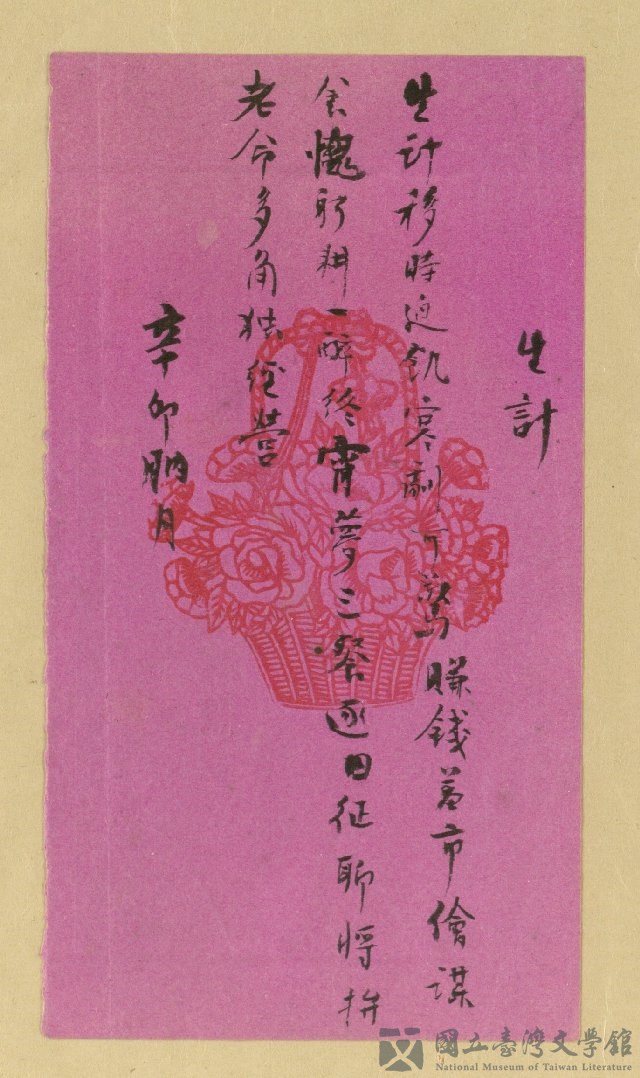 生計
生計移時迫飢寒劇可驚賺錢羞市儈謀
食愧躬耕一醉終宵夢三餐逐日征聊將拚
老命多角独経營
辛卯臘月
國立臺灣文學館
National Museum of Taiwan Literature